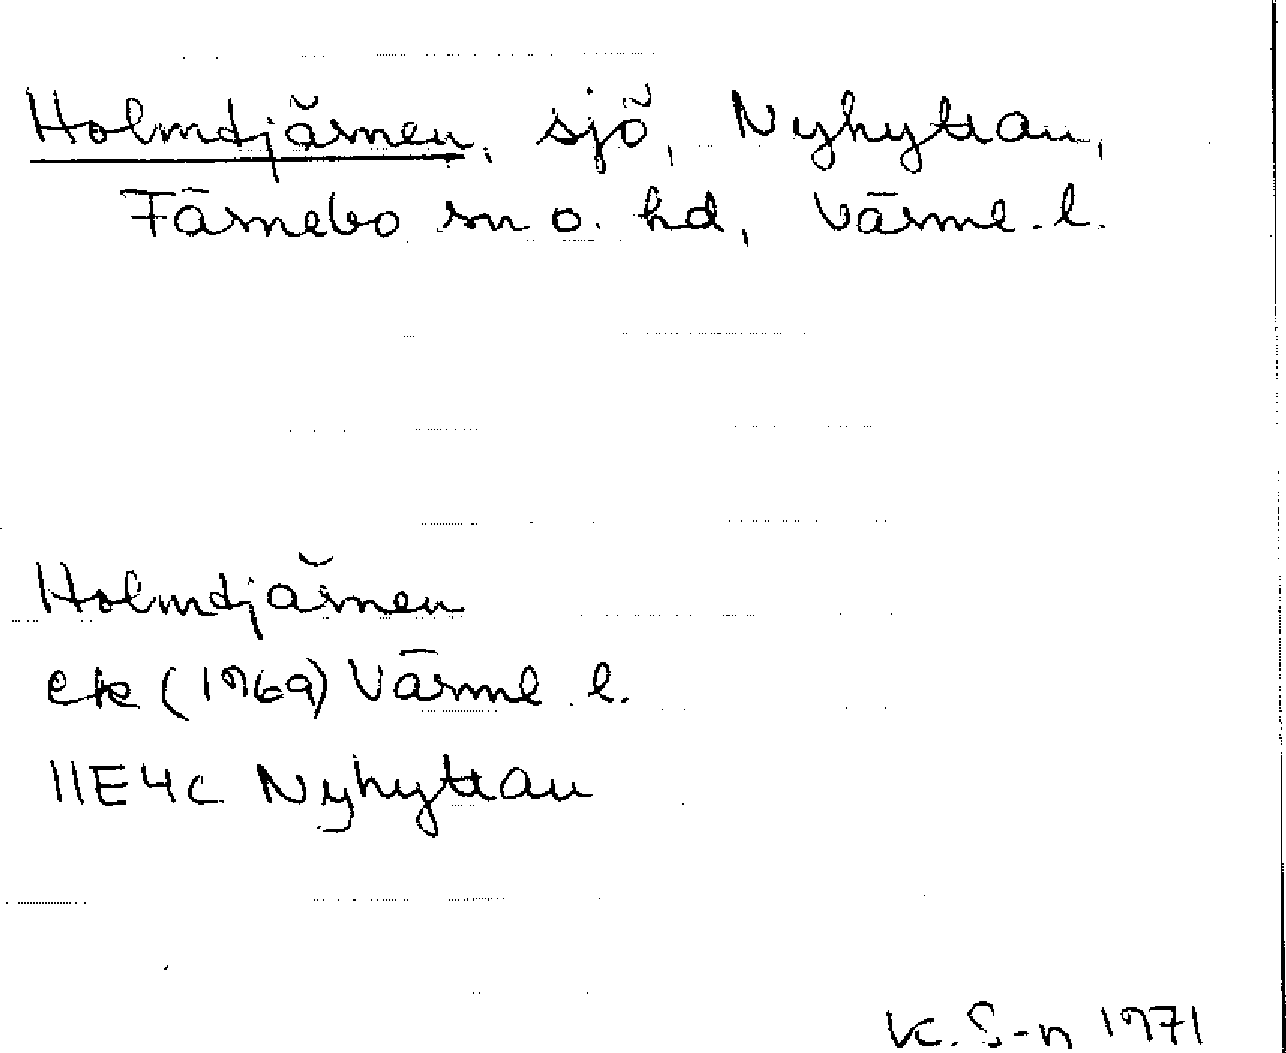 Holmdjärnen, sjö, Nyhyttan,
Färnebo sn o. hd, Värml. l.
Holmdjärnen
ek (1969) Värml. l.
11E4c Nyhyttan
K. S-n 1971